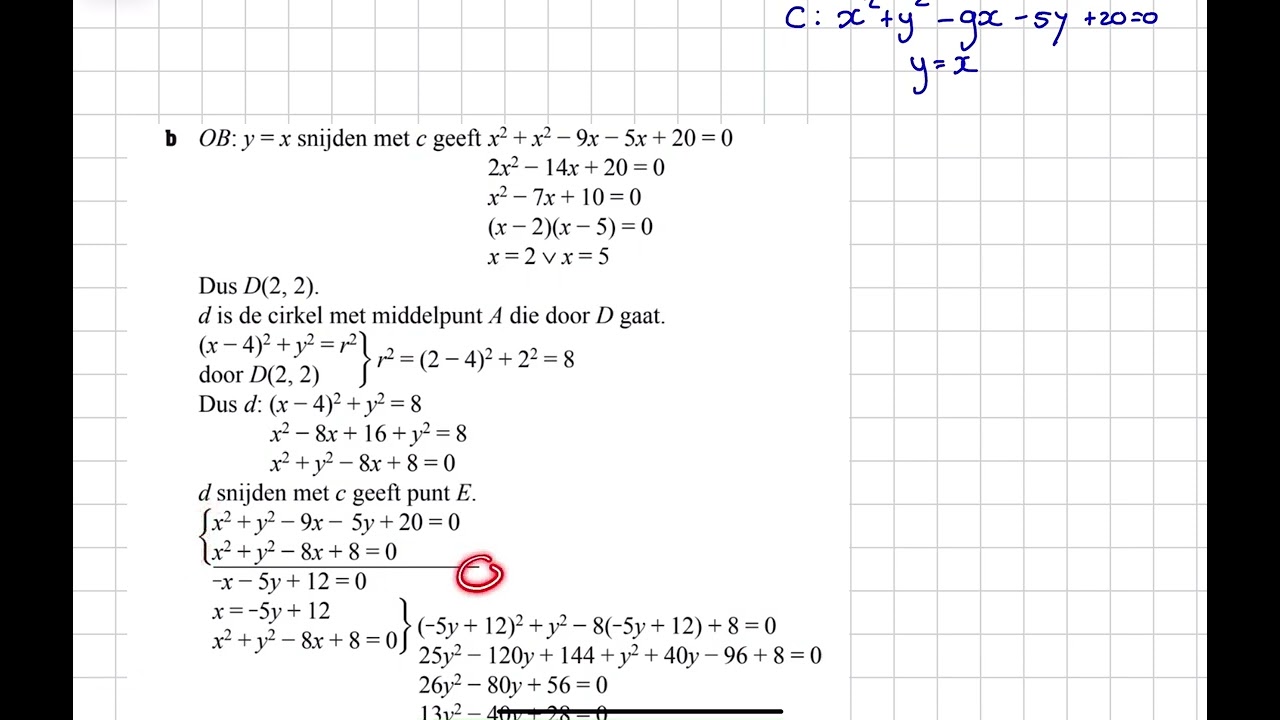 C: x² + y² - 9x - 5y + 20 = 0
y = x
b OB: y = x snijden met c geeft x² + x² − 9x − 5x + 20 = 0
2x² − 14x + 20 = 0
x² − 7x + 10 = 0
(x − 2)(x − 5) = 0
x = 2 ∨ x = 5
Dus D(2, 2).
d is de cirkel met middelpunt A die door D gaat.
(x − 4)² + y² = r²
door D(2, 2)
} r² = (2 − 4)² + 2² = 8
Dus d: (x − 4)² + y² = 8
x² − 8x + 16 + y² = 8
x² + y² − 8x + 8 = 0
d snijden met c geeft punt E.
{ x² + y² − 9x − 5y + 20 = 0
x² + y² − 8x + 8 = 0
−x − 5y + 12 = 0
x = −5y + 12
x² + y² − 8x + 8 = 0
} (−5y + 12)² + y² − 8(−5y + 12) + 8 = 0
25y² − 120y + 144 + y² + 40y − 96 + 8 = 0
26y² − 80y + 56 = 0
13y² − 40y + 28 = 0